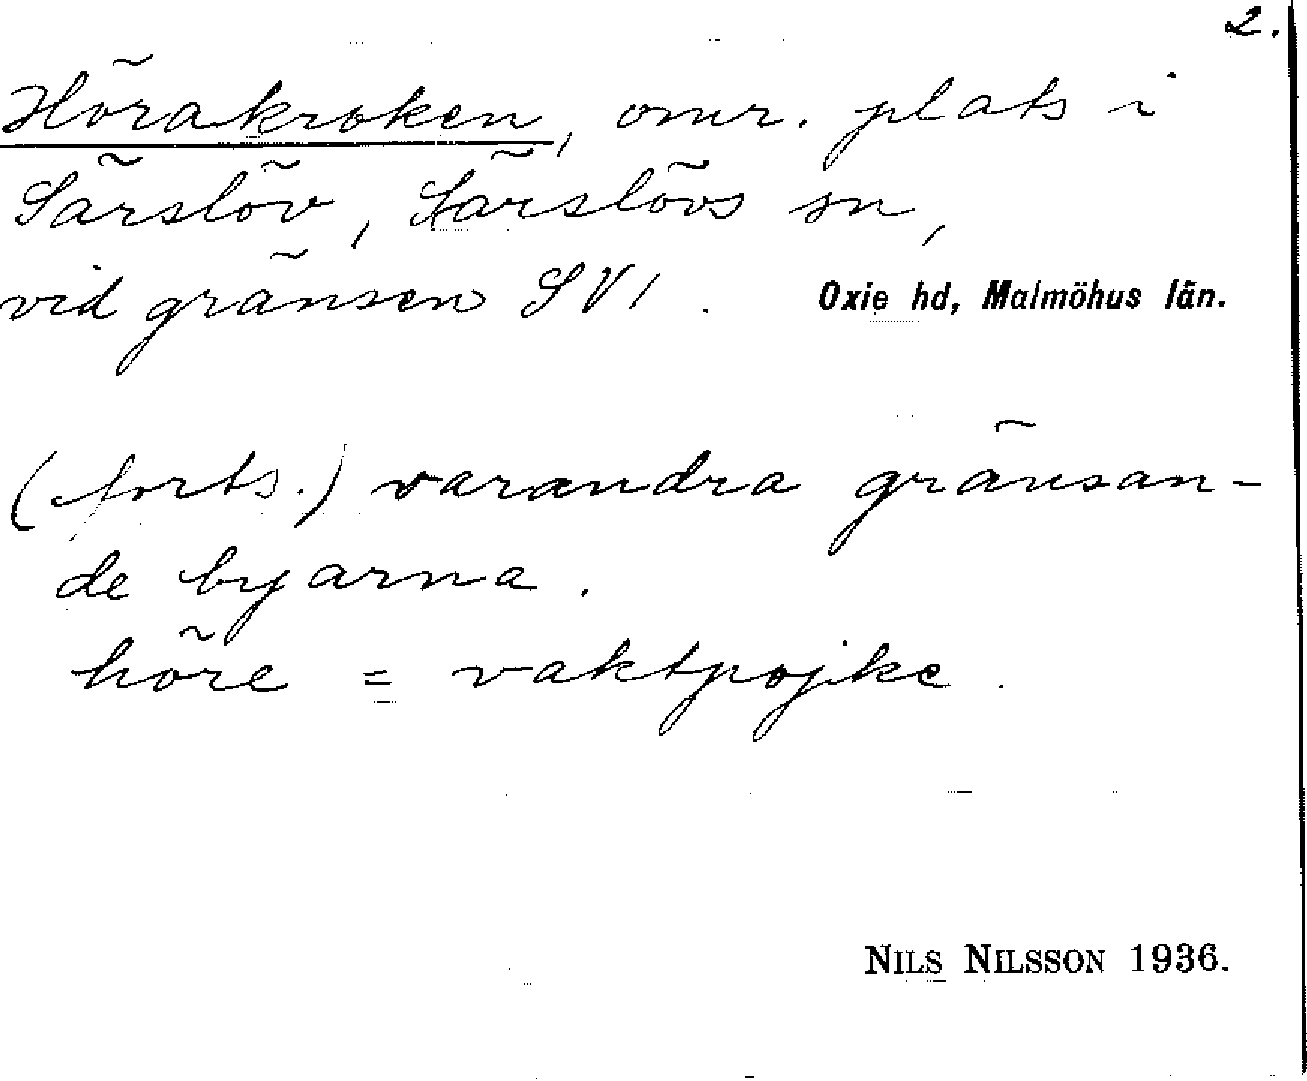 2.
Hörakroken, omr. plats i
Särslöv, Särslövs sn,
vid gränsen SV1.
Oxie hd, Malmöhus län.
(forts.) varandra gränsan-
de byarna.
höre = vaktpojke.
NILS NILSSON 1936.